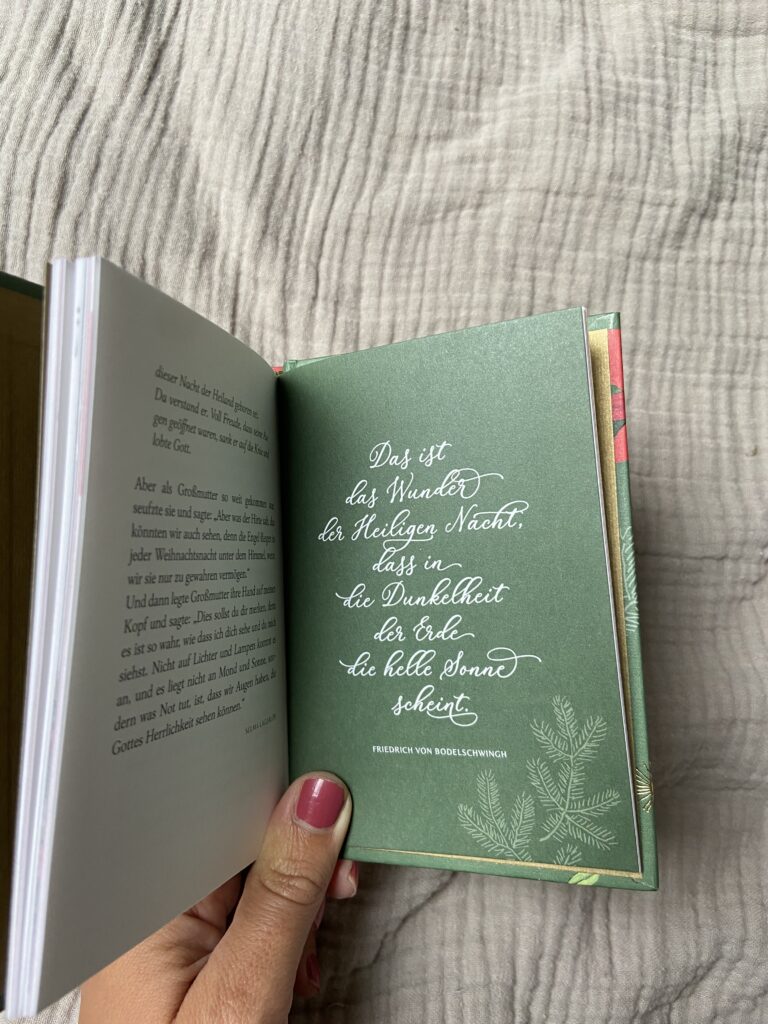 dieser Nacht der Heiland geboren sei.
Da verstand er. Voll Freude, dass seine Au-
gen geöffnet waren, sank er auf die Knie und
lobte Gott.
Aber als Großmutter so weit gekommen war,
seufzte sie und sagte: „Aber was der Hirte sah, das
könnten wir auch sehen, denn die Engel fliegen in
jeder Weihnachtsnacht unter dem Himmel, wenn
wir sie nur zu gewahren vermögen.“
Und dann legte Großmutter ihre Hand auf meinen
Kopf und sagte: „Dies sollst du dir merken, denn
es ist so wahr, wie dass ich dich sehe und du mich
siehst. Nicht auf Lichter und Lampen kommt es
an, und es liegt nicht an Mond und Sonne, son-
dern was Not tut, ist, dass wir Augen haben, die
Gottes Herrlichkeit sehen können.“
SELMA LAGERLÖF
Das ist
das Wunder
der Heiligen Nacht,
dass in
die Dunkelheit
der Erde
die helle Sonne
scheint.
FRIEDRICH VON BODELSCHWINGH